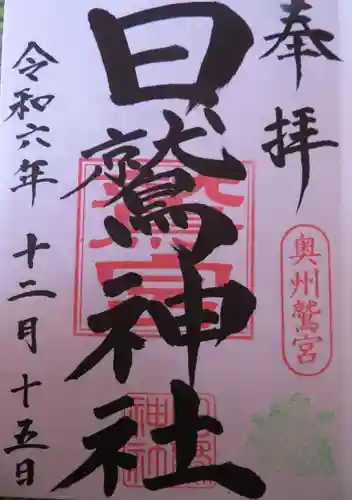 奉拝
奥州鷲宮
日鷲神社
鷲宮
令和六年 十二月 十五日